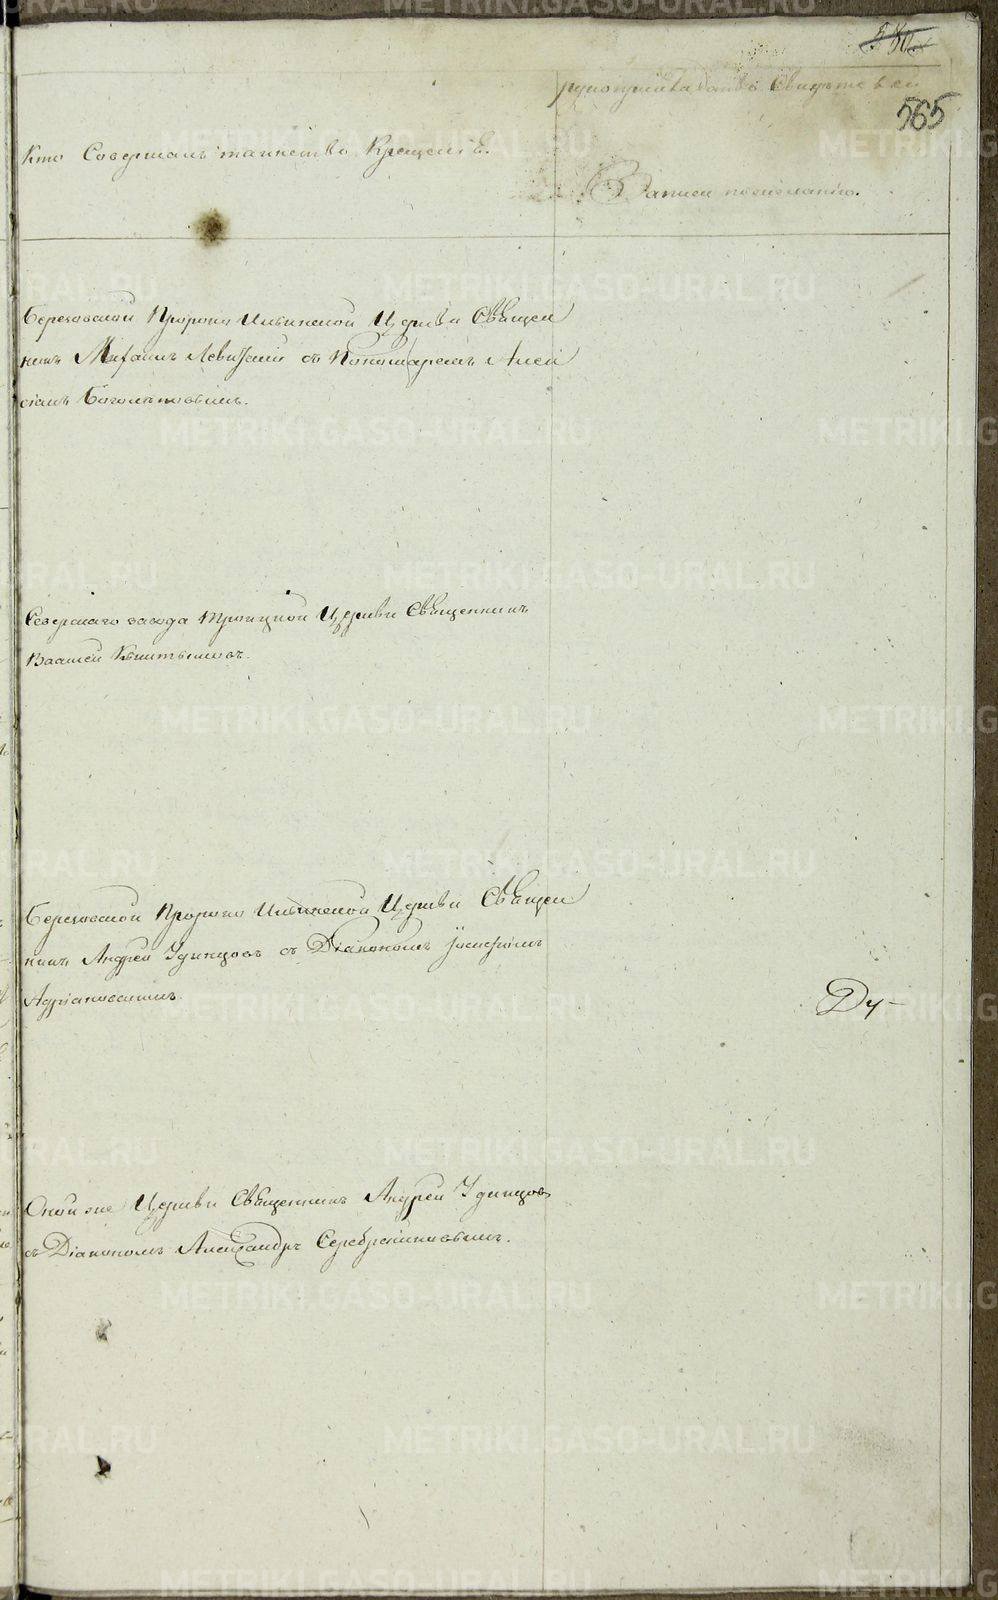 565
Кто Совершалъ таинство Крещенiе.
рукоприкладство Свидетелей
Записи по желанiю.
Березовской Пророко Ильинской Церкви Священ
никъ Михаилъ Левицкiй съ Пономаремъ Алек
сiемъ
Северскаго завода Троицкой Церкви Священникъ
Василiй
Березовской Пророко Ильинской Церкви Священ
никъ Андрей Удинцовъ съ Дiакономъ Iосифомъ
Адрiановскимъ.
Оной же Церкви Священникъ Андрей Удинцовъ
съ Дiакономъ Александръ Серебрениковымъ.
METRIKI.GASO-URAL.RU